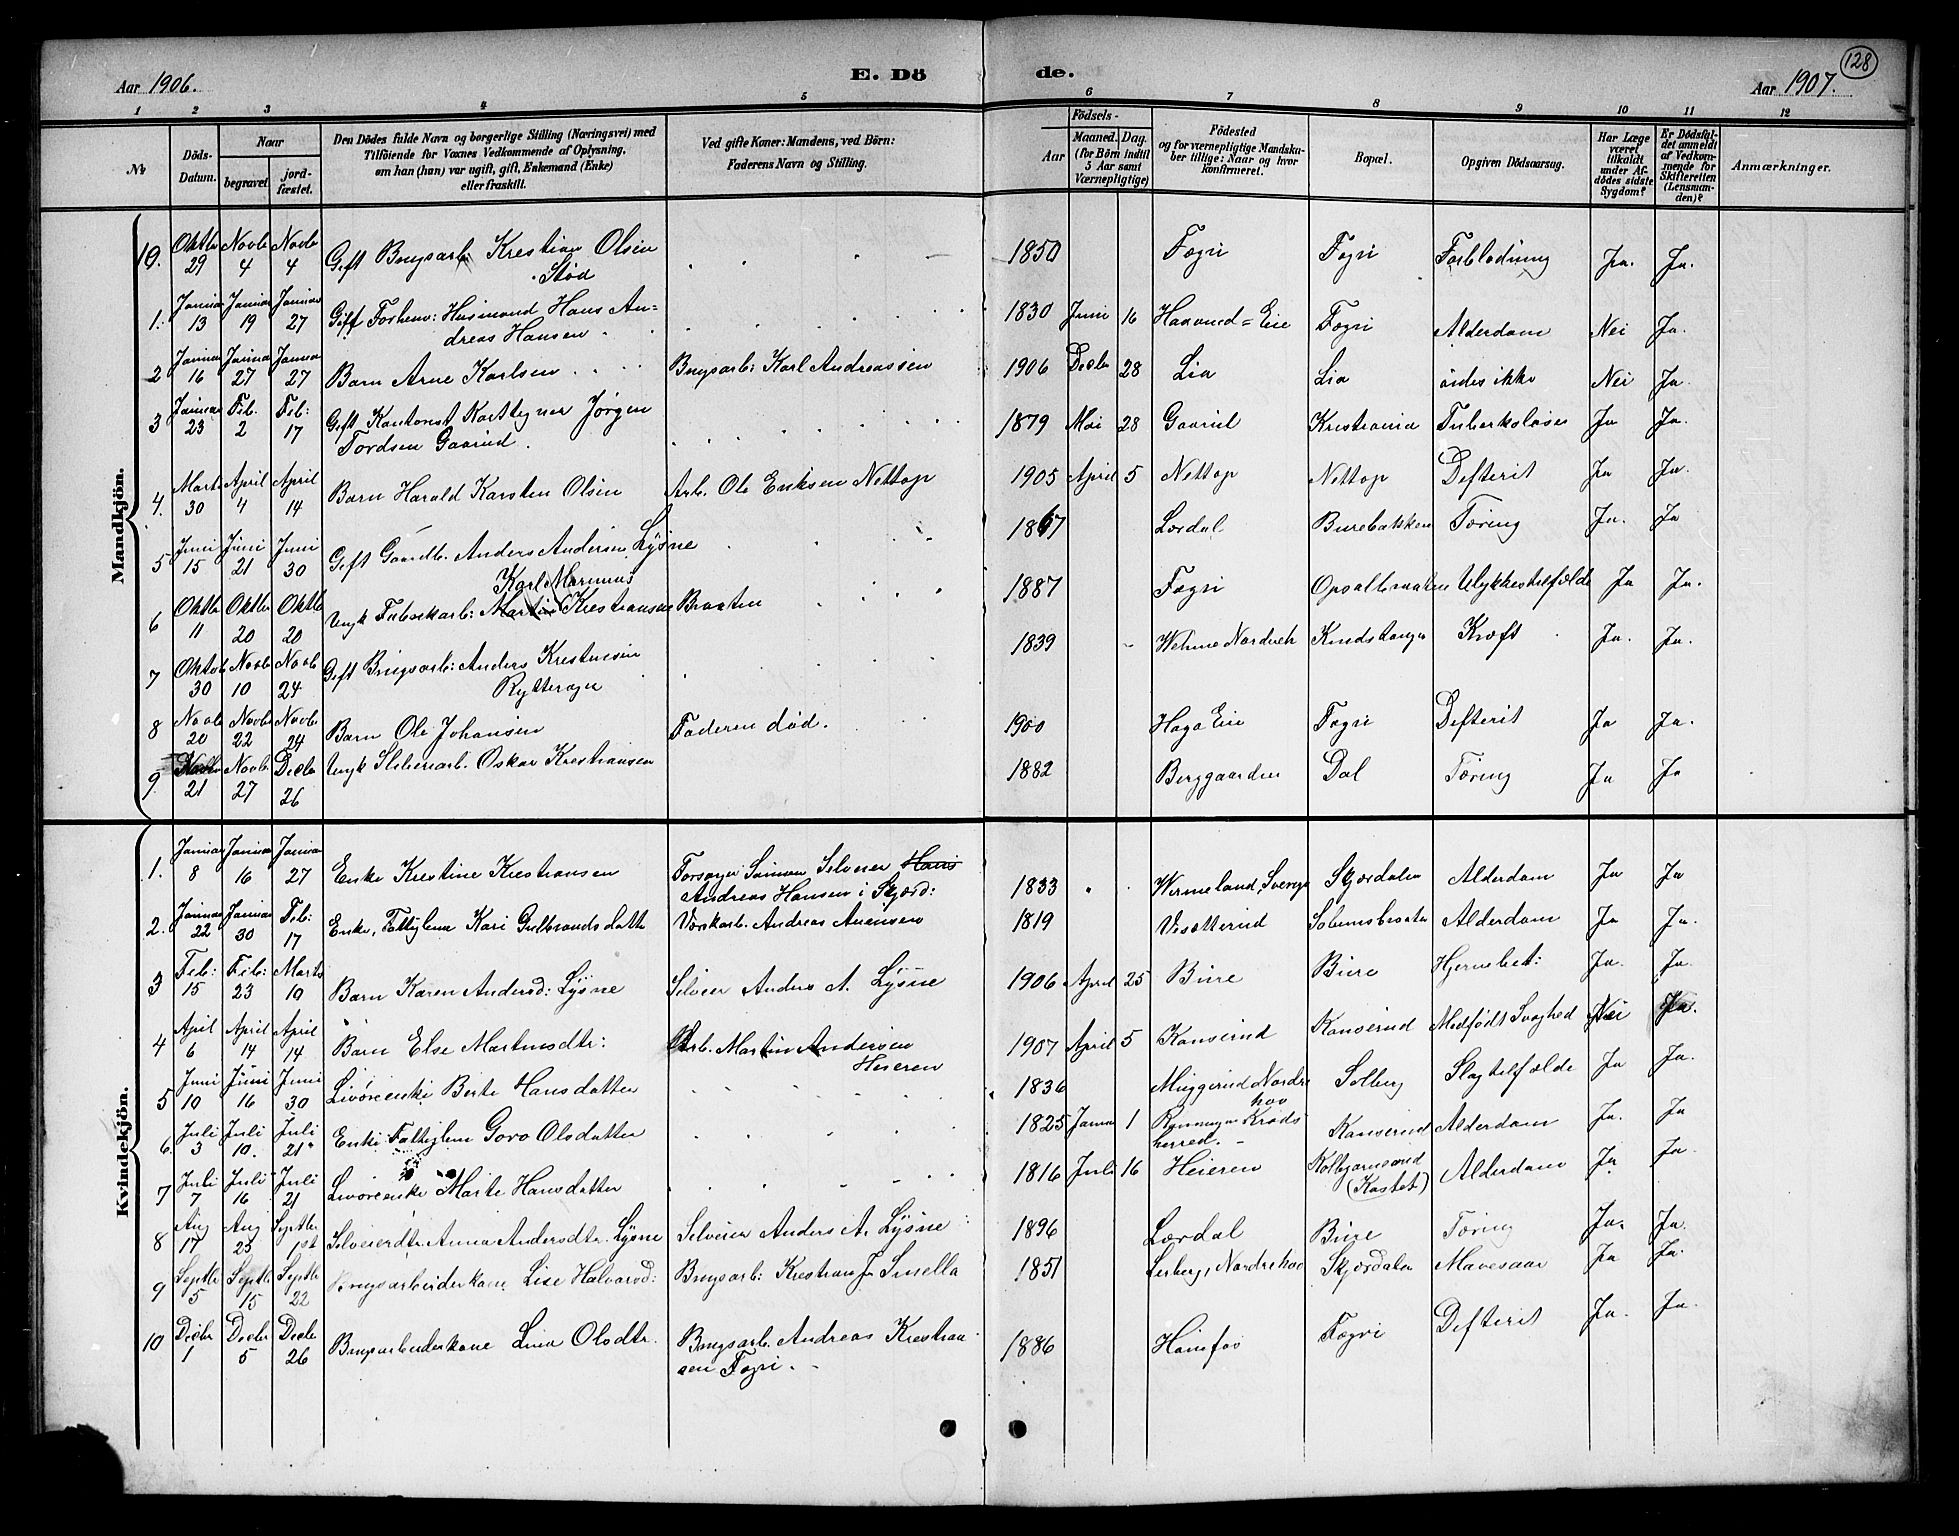 Aar 1906.
E. Dö
de.
Aar 1907.
128
1 2 3 4 5 6 7 8 9 10 11 12
№
Döds-Datum.
Naar
begravet.
jordfæstet.
Den Dödes fulde Navn og borgerlige Stilling (Næringsvei) med
Tilföiende for Voxnes Vedkommende af Oplysning,
om han (hun) var ugift, gift, Enkemand (Enke)
eller fraskilt.
Ved gifte Koner: Mandens, ved Börn:
Faderens Navn og Stilling.
Födsels-
Aar
Maaned. Dag.
(for Börn indtil
5 Aar samt
Værnepligtige)
Födested
og for værnepligtige Mandskaber tillige: Naar og hvor
konfirmeret.
Bopæl.
Opgiven Dödsaarsag.
Har Læge
været
tilkaldt
under Afdödes sidste
Sygdom?
Er Dödsfaldet anmeldt
af Vedkommende for
Skifteretten
(Lensmanden)?
Anmærkninger.
Mandkjön.
10. Oktbr 29 Novbr 4 Novbr 4 Gift Brugsarb: Kristian Olsen Stød 1850 Fægri Fægri Forblödning Ja. Ja.
1. Januar 13 Januar 19 Januar 27 Gift Forhenv: Husmand Hans Andreas Hansen 1830 Juni 16 Fægri Alderdom Nei Ja.
2 Januar 16 Januar 27 Januar 27 Barn Arne Karlsen Brugsarb: Karl Andreassen 1906 Decbr 28 Lia Lia vides ikke Nei Ja.
3 Januar 23 Feb. 2 Feb: 17 Gift Kantorist Karttegner Jörgen Tordsen Gaarud 1879 Mai 28 Gaarud Kristiania Tuberkulose Ja Ja.
4. Marts 30 April 4 April 14 Barn Harald Karsten Olsen Arb. Ole Eriksen Nettop 1905 April 5 Nettop Nettop Defterit Ja Ja.
5 Juni 15 Juni 21 Juni 30 Gift Gaardb. Anders Andersen Lysne 1867 Lærdal Burebakken Tæring Ja. Ja
6 Oktbr 11 Oktbr 20 Oktbr 20 Ungk Fabrikarb: Karl Marinus Martin Kristiansen Braaten 1887 Fægri Opsalbraaten Ulykkestilfælde Ja Ja.
7 Oktob 30 Novbr 10 Novbr 24 Gift Brugsarb: Anders Kristensen Rytterager 1839 Kindstangen Kræft Ja. Ja.
8 Novbr 20 Novbr 22 Novbr 24 Barn Ole Johansen Faderen död. 1900 Haga Eie Fægri Defterit Ja Ja.
9. Novbr 21 Novbr 27 Decbr 26 Ungk Sliberiarb. Oskar Kristiansen 1882 Berggaarden Dal Tæring Ja Ja
Kvindekjön.
1. Januar 8 Januar 16 Januar 27 Enke Kristine Kristiansen Forsörger Sönnen Selveier Hans Andreas Hansen i Skjærd: 1833 Wermeland, Sverige Skjærdalen Alderdom Ja Ja
2. Januar 22 Januar 30 Feb: 17 Enke, Fattiglem Kari Gulbrandsdatter Værksarb. Andreas Amensen 1819 Visætterud Solumsbraaten Alderdom Ja Ja.
3 Feb: 15 Feb: 23 Marts 10 Barn Karen Andersd: Lysne Selveier Anders A. Lysne 1906 April 25 Bure Bure Hjernebet: Ja. Ja.
4 April 6 April 14 April 14 Barn Else Martinsdtr: Arb. Martin Andersen Heieren 1907 April 5 Kanserud Kanserud Medfödt Svaghed Nei Ja.
5 Juni 10 Juni 16 Juni 30 Livöreenke Berte Hansdatter 1836 Muggerud Nordrehov Solberg Slagtilfælde Ja Ja.
6. Juli 3 Juli 10. Juli 21 Enke Fattiglem Goro Olsdatter 1825 Januar 1 Krödsherred. Kanserud Alderdom Ja. Ja
7 Juli 7 Juli 16 Juli 21 Livöreenke Marte Hansdatter 1816 Juli 16 Heieren Kolbjørnsrud (Kastet) Alderdom Ja Ja.
8 Aug 17 Aug 25 Septbr 1st Selveierdtr Anna Andersdtr. Lysne Selveier Anders A. Lysne 1896 Lærdal Bure Tæring Ja. Ja.
9 Septbr 5 Septbr 15 Septbr 22 Brugsarbeiderkone Lise Halvorsd: Brugsarb: Kristian J. Smella 1851 Lerberg, Nordrehov Skjærdalen Mavesaar Ja Ja.
10 Decbr 1 Decbr 5 Decbr 26 Brugsarbeiderkone Lina Olsdtr. Brugsarb. Andreas Kristiansen Fægri. 1886 Hönefos Fægri Defterit Ja. Ja.